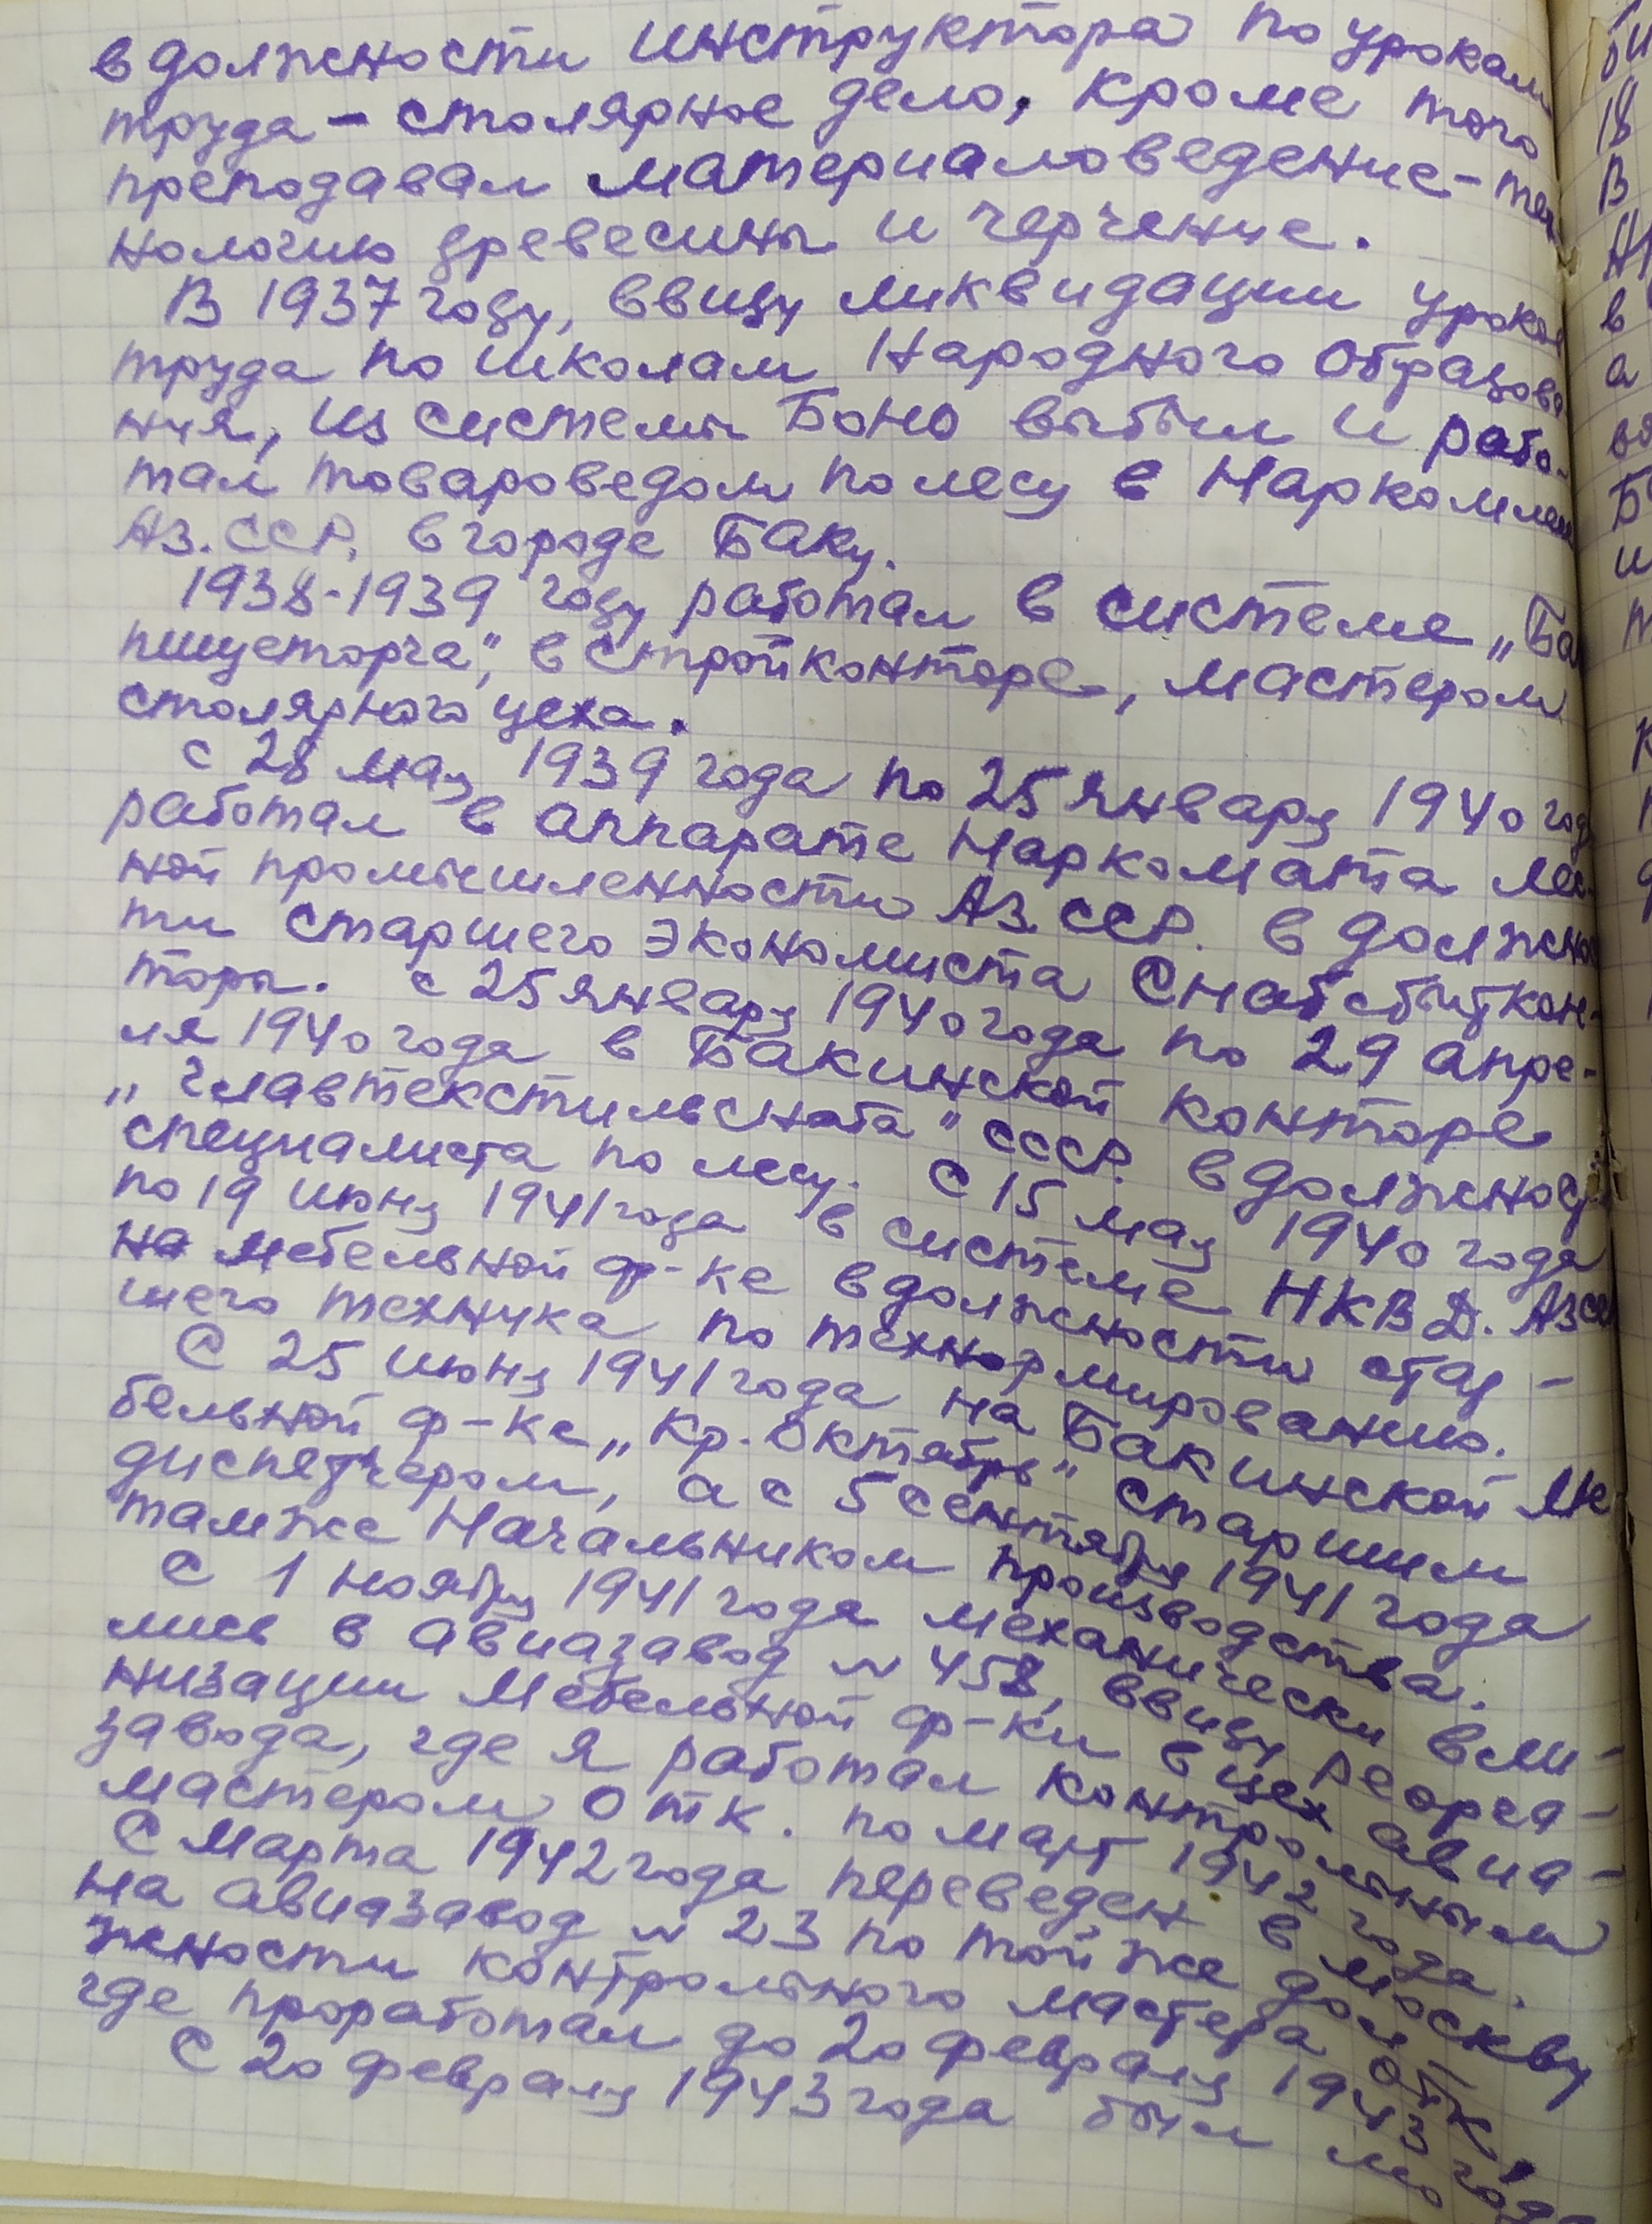 в должности инструктора по урокам
труда - столярное дело, кроме того
преподавал материаловедение - тех
нологию древесины и черчение.
В 1937 году, ввиду ликвидации уроков
труда по школам Народного Образова
ния, из системы БОНО выбыл и рабо-
тал товароведом по лесу в Наркомлесе
Аз.ССР. в городе Баку.
1938-1939 году работал в системе „Ба
пищеторга", в Стройконторе, мастером
столярного цеха.
С 28 мая 1939 года по 25 января 1940 года
работал в аппарате Наркомата Лес-
ной промышленности Аз.ССР. в должнос
ти старшего экономиста Снабсбыткон-
торы. С 25 января 1940 года по 29 апре-
ля 1940 года в Бакинской конторе
„Главтекстильснаба" СССР. в должности
специалиста по лесу. С 15 мая 1940 года
по 19 июня 1941 года в системе НКВД. Азсср
на мебельной ф-ке в должности стар-
шего техника по технормированию.
С 25 июня 1941 года на Бакинской Ме
бельной ф-ке „Кр. Октябрь" старшим
диспетчером, а с 5 сентября 1941 года
тамже Начальником производства.
С 1 ноября 1941 года механически вли-
лись в Авиазавод N 458, ввиду реорга-
низации Мебельной ф-ки в цех авиа-
завода, где я работал контрольным
мастером ОТК. по март 1942 года.
С Марта 1942 года переведен в Москву
на Авиазавод N 23 по той же дол
жности контрольного мастера ОТК,
где проработал до 20 февраля 1943 года
С 20 февраля 1943 года был мо